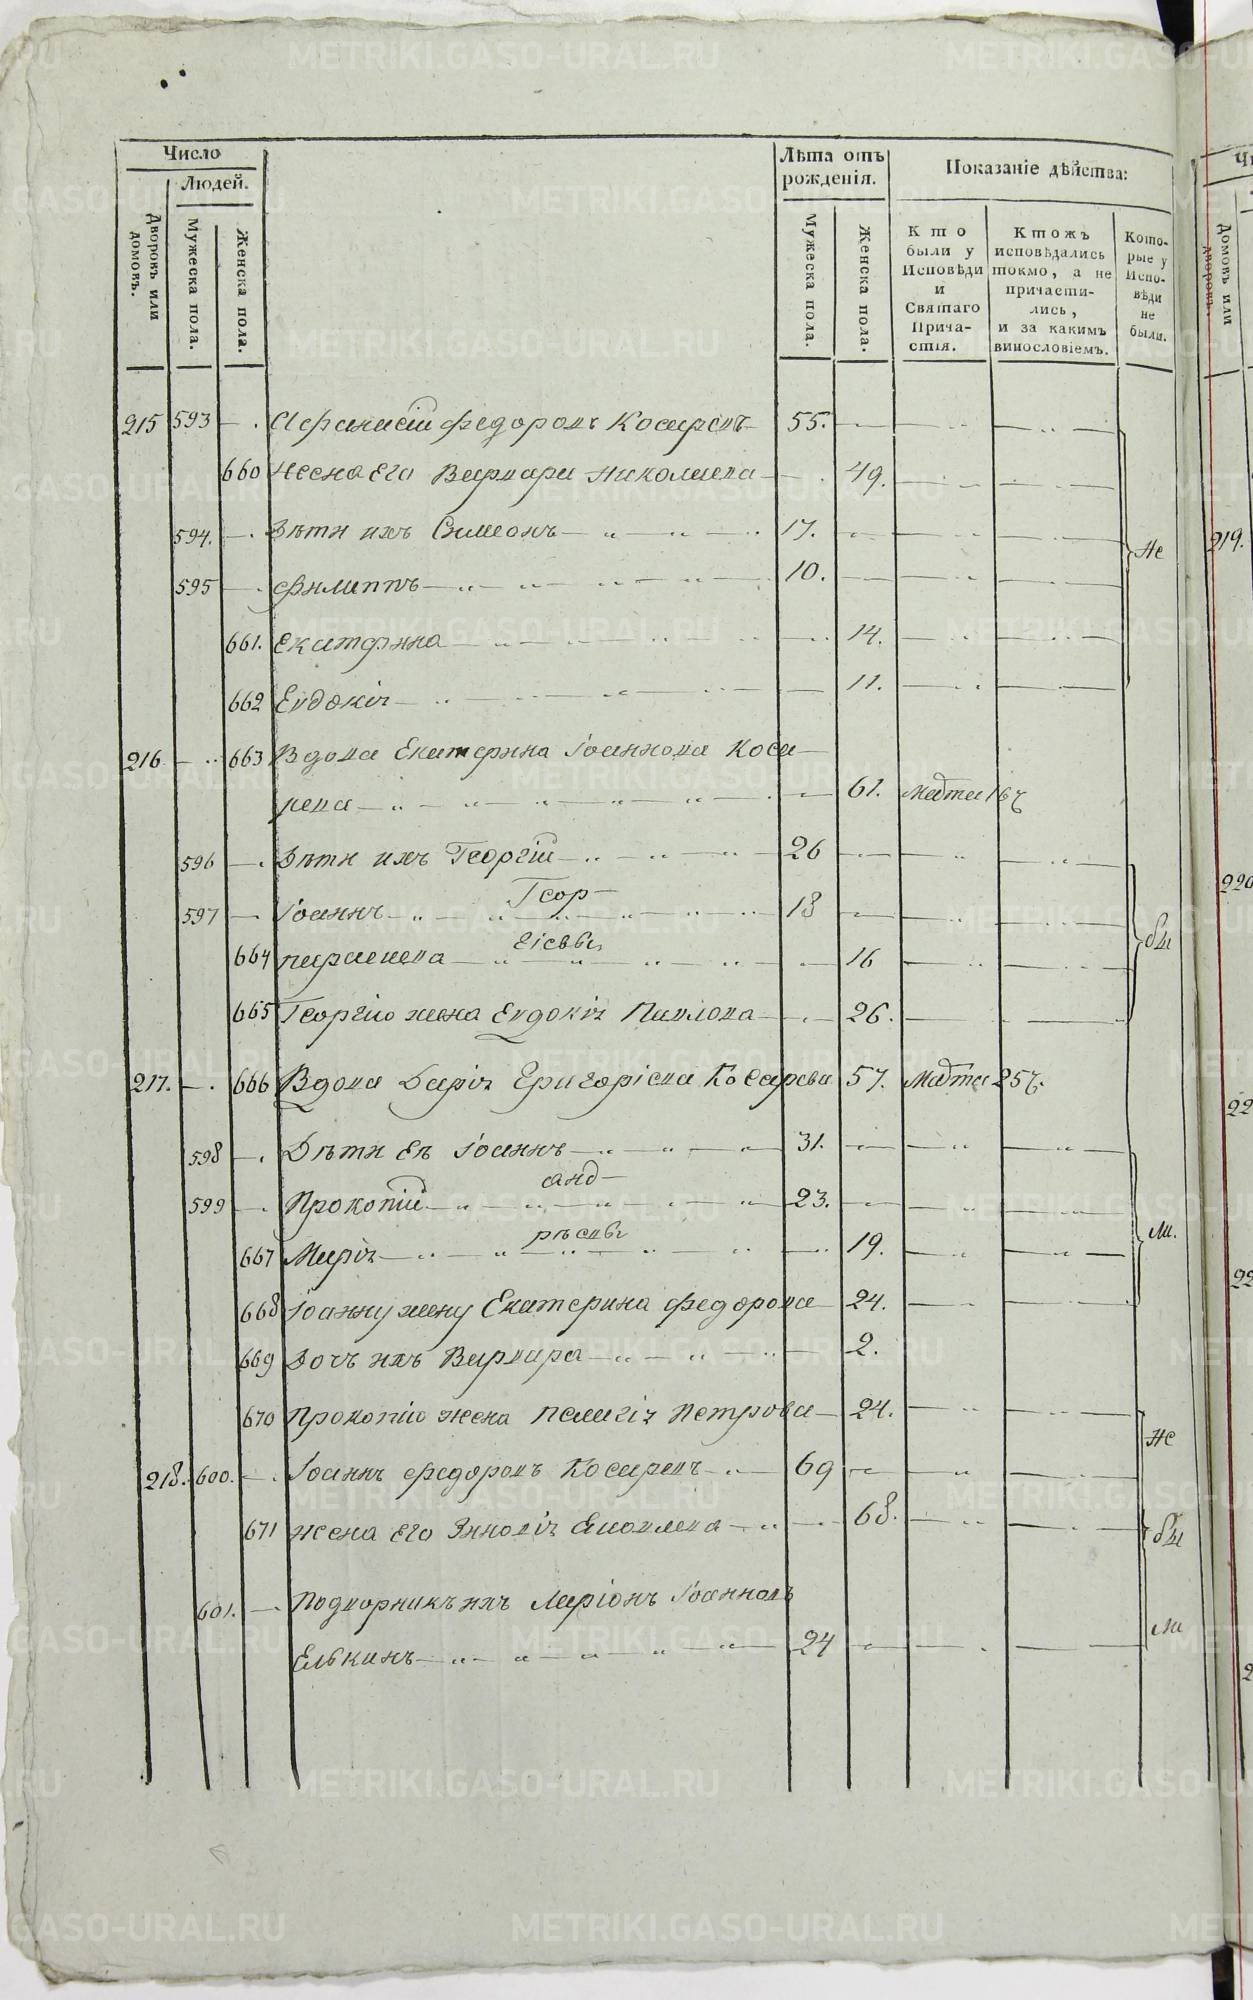 Число
Людей.
Дворовъ или домовъ.
Мужеска пола.
Женска пола.
Лѣта отъ рожденія.
Мужеска пола.
Женска пола.
Показаніе дѣйства:
Кто были у Исповѣди и Святаго Прича-стія.
Ктожъ исповѣдались токмо, а не причасти-лись, и за какимъ винословіемъ.
Кото-рые у Испо-вѣди не были.
215 593 Афанасій Федоровъ Косаревъ 55.
660 Жена Его Варвара Николаева 49.
594. Дѣти ихъ Симеонъ 17.
Не
595 Филиппъ 10.
661. Екатерина 14.
662 Евдокія 11.
216 663 Вдова Екатерина Іоаннова Коса
рева 61.
596 Дѣти ихъ Георгій 26
Геор-
597 Іоаннъ 18
гіевы
бы
664 16
665 Георгію жена Евдокія Павлова 26.
217. 666 Вдова Дарія Григоріева Косарева 57.
598 Дѣти Еѣ Іоаннъ 31.
анд-
599 Прокопій 23.
рѣевы
667 Марія 19.
ли.
668 Іоанну жену Екатерина Федорова 24.
669 Дочь ихъ Варвара 2.
670 Прокопію жена Пелагія Петрова 24.
Не
218. 600. Іоаннъ Федоровъ Косаревъ 69
671 Жена Его Зиновія Яковлева 68.
бы
601. Подворникъ ихъ Ларіонъ Іоанновъ
ли
Елькинъ 24
Домовъ или дворовъ.
219.
220
METRIKI.GASO-URAL.RU